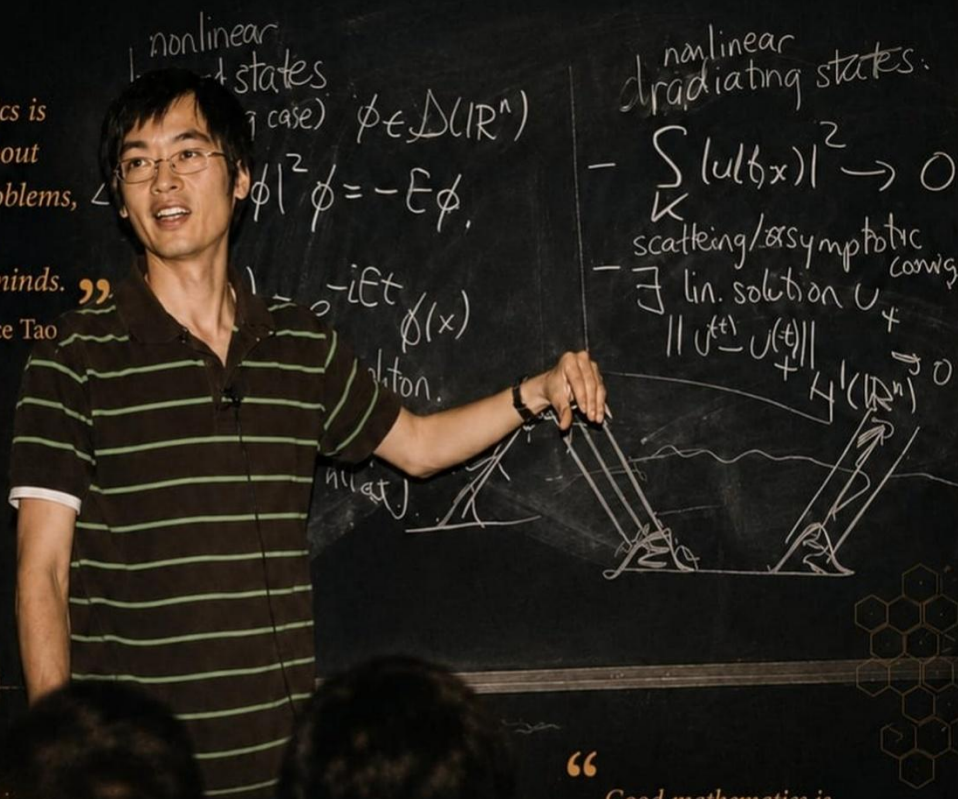 cs is
out
oblems,
minds. ”
ce Tao
nonlinear
states
case) ϕ ∈ 𝒮(ℝⁿ)
ϕ|² ϕ = -Eϕ.
-iEt ϕ(x)
nonlinear
radiating states.
- ∫ |u(t,x)|² → 0
K
scatteing/asymptotic
- ∃ lin. solution u₊
||u(t) - u₊(t)||
H¹(ℝⁿ) → 0
“
Good mathematics is